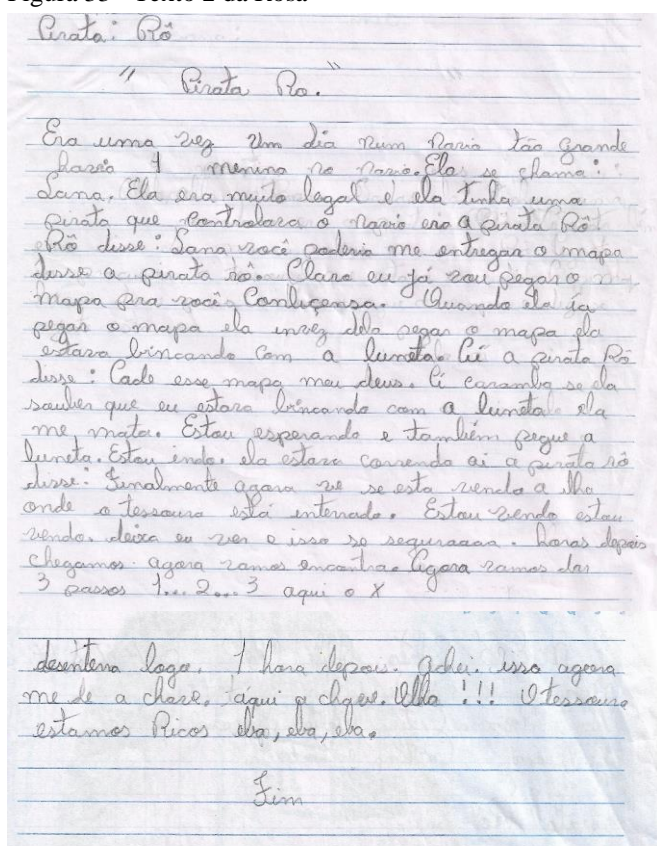 Figura 33 – Texto 2 da Rosa
Pirata: Rô
" Pirata Ro. "
Era uma vez Um dia Num Navio tão grande
havia 1 menina no Navio. Ela se chama:
Lana. Ela era muito legal e ela tinha uma
pirata que controlava o navio era a pirata Rô
Rô disse: Lana você poderia me entregar o mapa
disse a pirata rô. Claro eu já vou pegar o
mapa pra você Conliçensa. Quando ela ia
pegar o mapa ela invez dela pegar o mapa ela
estava brincando com a luneta. Ai a pirata Rô
disse: Cade esse mapa meu deus. Ai caramba se ela
souber que eu estava brincando com a luneta ela
me mata. Estou esperando e também pegue a
luneta. Estou indo. ela estava correndo ai a pirata rô
disse: Finalmente agora ve se esta vendo a ilha
onde o tessouro está interrado. Estou vendo estou
vendo. deixa eu ver e isso so seguraaaa. horas depois
chegamos. agora vamos encontra. Agora vamos dar
3 passos 1... 2... 3 aqui o x
desenterra logo. 1 hora depois. Achei. isso agora
me de a chave. taqui a chave. Olha !!! O tessouro
estamos Ricos eba, eba, eba.
Fim